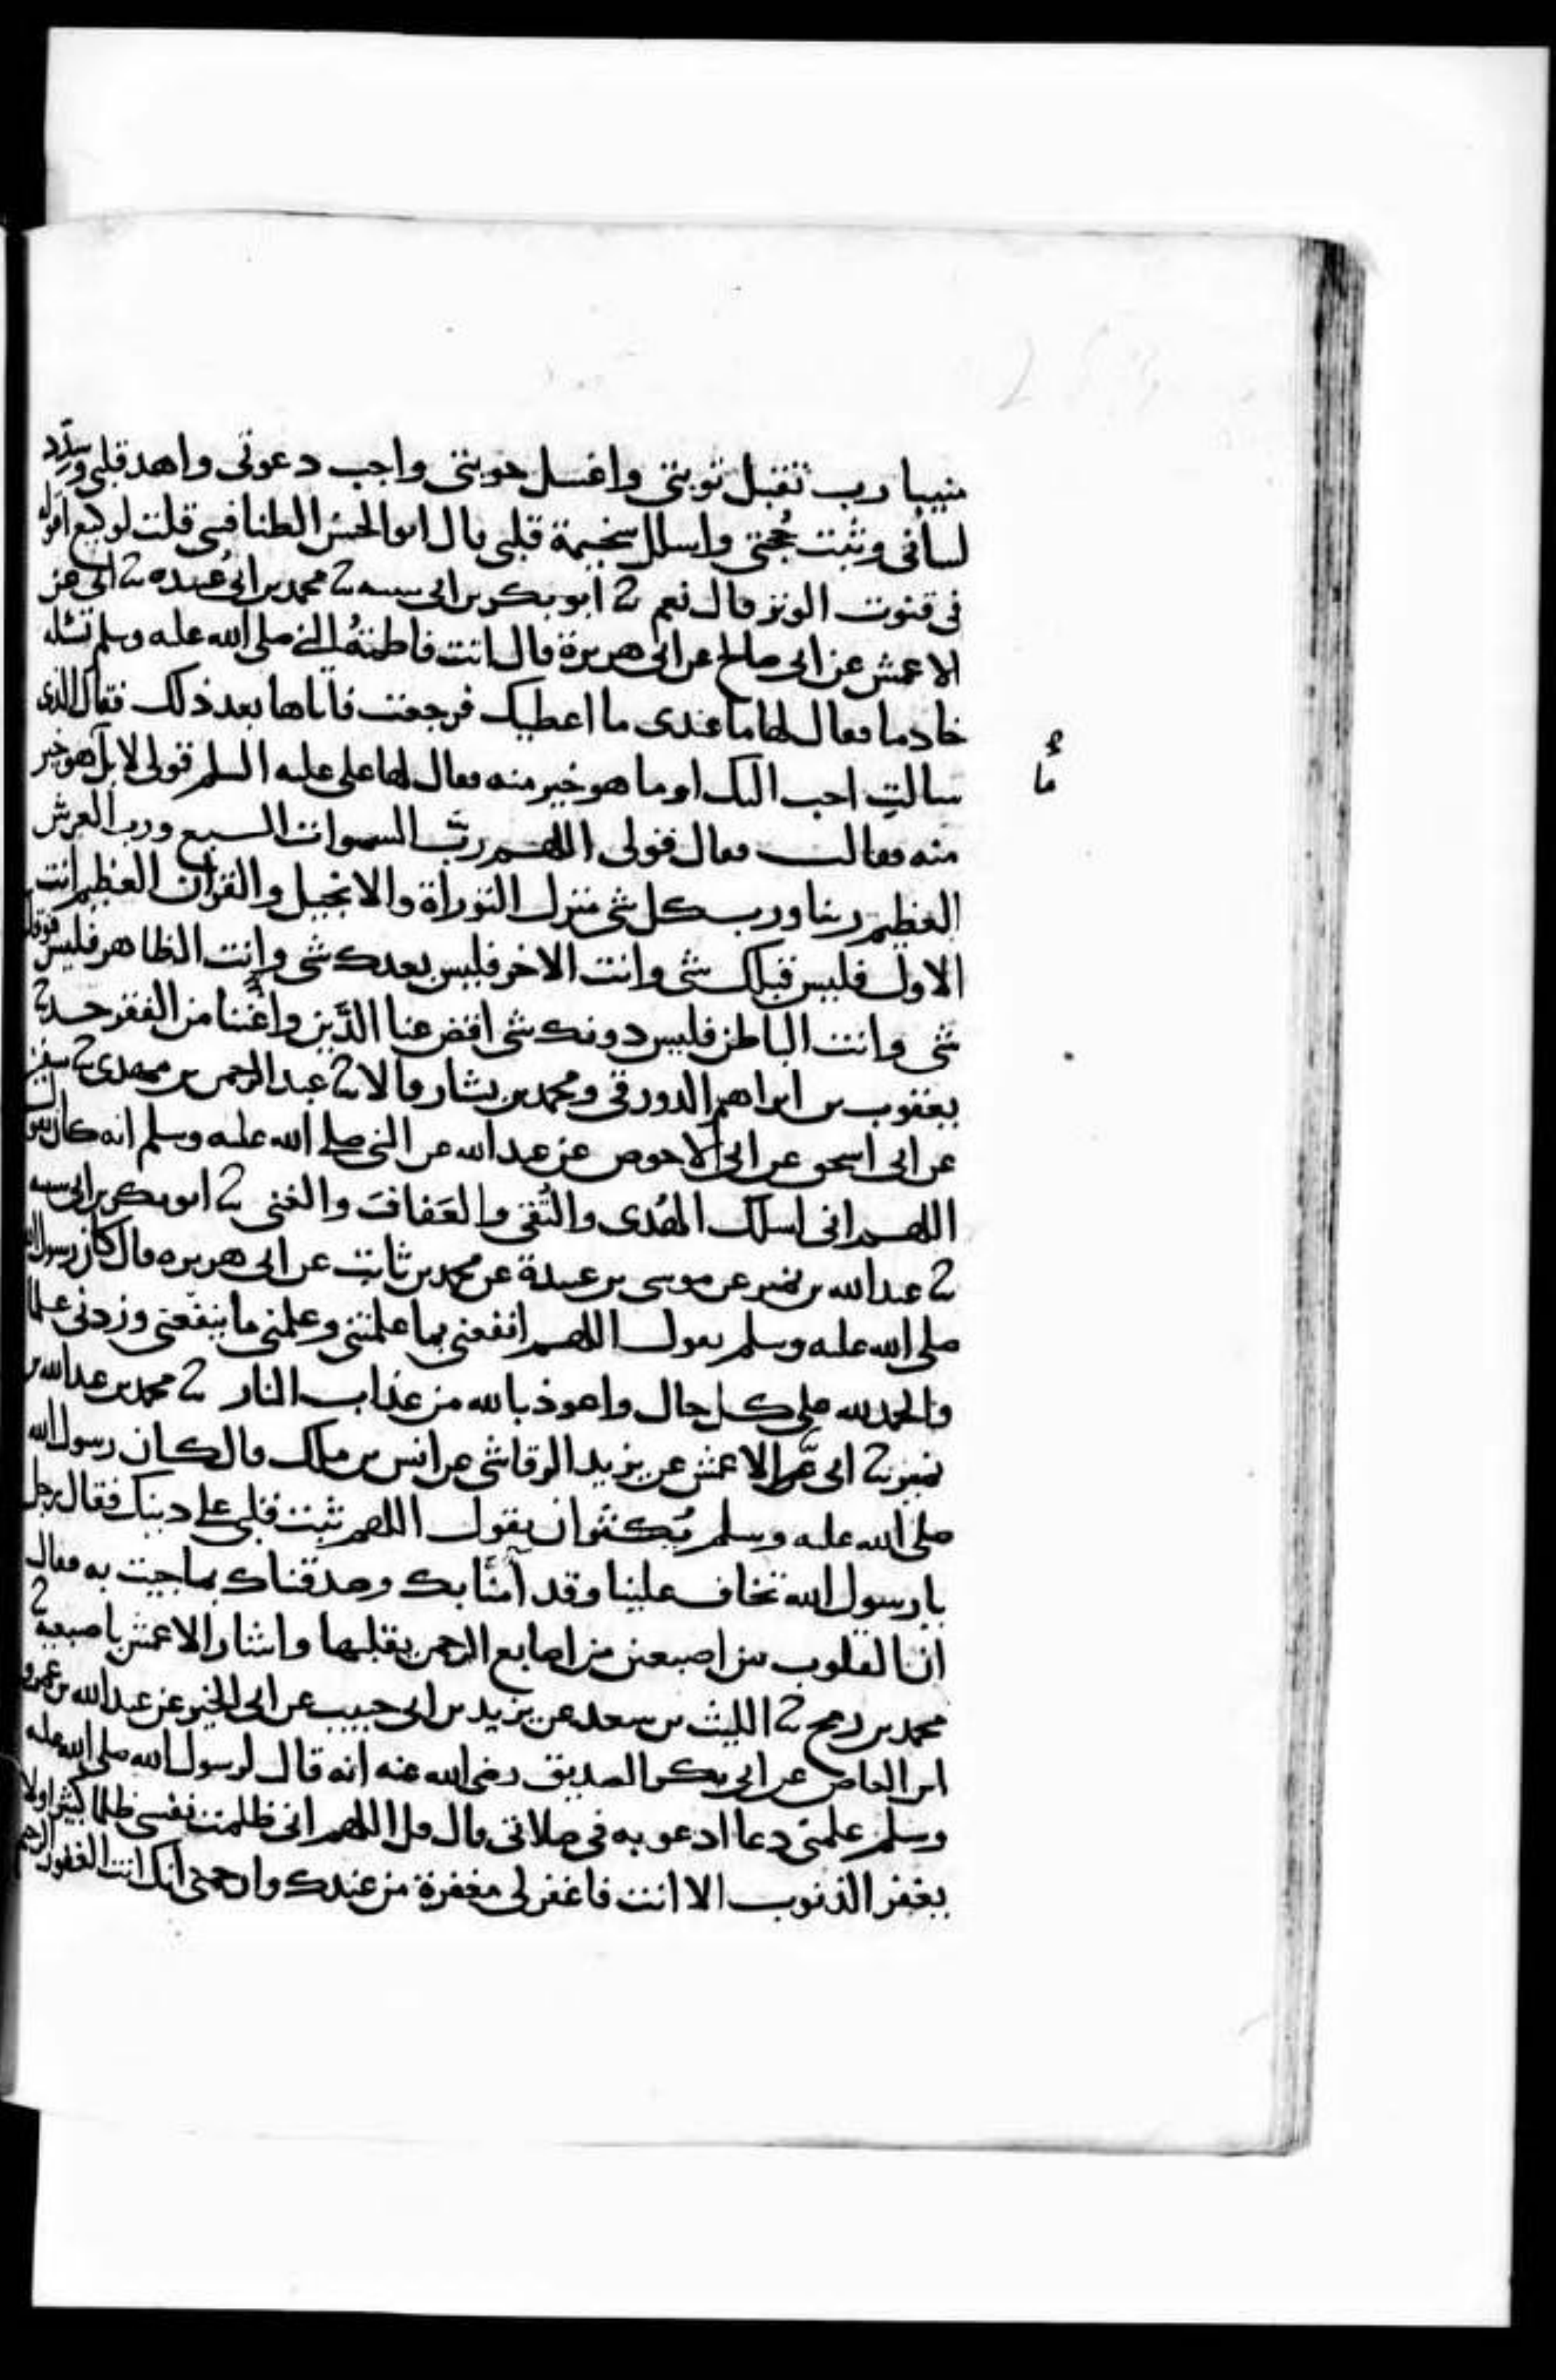 منيبا رب تقبل توبتي واغسل حوبتي واجب دعوتي واهد قلبي وسدد
لساني وثبت حجتي واسلل سخيمة قلبي قال ابو الحسن الطنافسي قلت لوكيع اقوله
في قنوت الوتر قال نعم ثنا ابو بكر بن ابي شيبه ثنا محمد بن ابي عبيده ثنا ابي عن
الاعمش عن ابي صالح عن ابي هريرة قال اتت فاطمة النبي صلى الله عليه وسلم تسئله
خادما فقال لها ما عندي ما اعطيك فرجعت فاتاها بعد ذلك فقال الذي
سالت احب اليك او ما هو خير منه فقال لها علي عليه السلم قولي لا بل ما هو خير
ما
منه فقالت فقال قولي اللهم رب السموات السبع ورب العرش
العظيم ربنا ورب كل شي منزل التوراة والانجيل والقران العظيم انت
الاول فليس قبلك شي وانت الاخر فليس بعدك شي وانت الظاهر فليس فوقك
شي وانت الباطن فليس دونك شي اقض عنا الدين واغننا من الفقر حدثنا
يعقوب بن ابراهيم الدورقي ومحمد بن بشار قالا ثنا عبد الرحمن بن مهدي ثنا سفين
عن ابي اسحق عن ابي الاحوص عن عبد الله عن النبي صلى الله عليه وسلم انه كان يقول
اللهم اني اسلك الهدى والتقى والعفاف والغنى ثنا ابو بكر بن ابي شيبه
ثنا عبد الله بن نمير عن موسى بن عبيدة عن محمد بن ثابت عن ابي هريره قال كان رسول الله
صلى الله عليه وسلم يقول اللهم انفعني بما علمتني وعلمني ما ينفعني وزدني علما
والحمد لله على كل حال واعوذ بالله من عذاب النار ثنا محمد بن عبد الله بن
نمير ثنا ابي ثنا الاعمش عن يزيد الرقاشي عن انس بن ملك قال كان رسول الله
صلى الله عليه وسلم يكثر ان يقول اللهم ثبت قلبي على دينك فقال رجل
يا رسول الله تخاف علينا وقد آمنا بك وصدقناك بما جيت به فقال
ان القلوب بين اصبعين من اصابع الرحمن يقلبها واشار الاعمش باصبعيه ثنا
محمد بن رمح ثنا الليث بن سعد عن يزيد بن ابي حبيب عن ابي الخير عن عبد الله بن عمرو
ابن العاص عن ابي بكر الصديق رضي الله عنه انه قال لرسول الله صلى الله عليه
وسلم علمني دعا ادعو به في صلاتي قال قل اللهم اني ظلمت نفسي ظلما كثيرا ولا
يغفر الذنوب الا انت فاغفر لي مغفرة من عندك وارحمني انك انت الغفور الرحيم